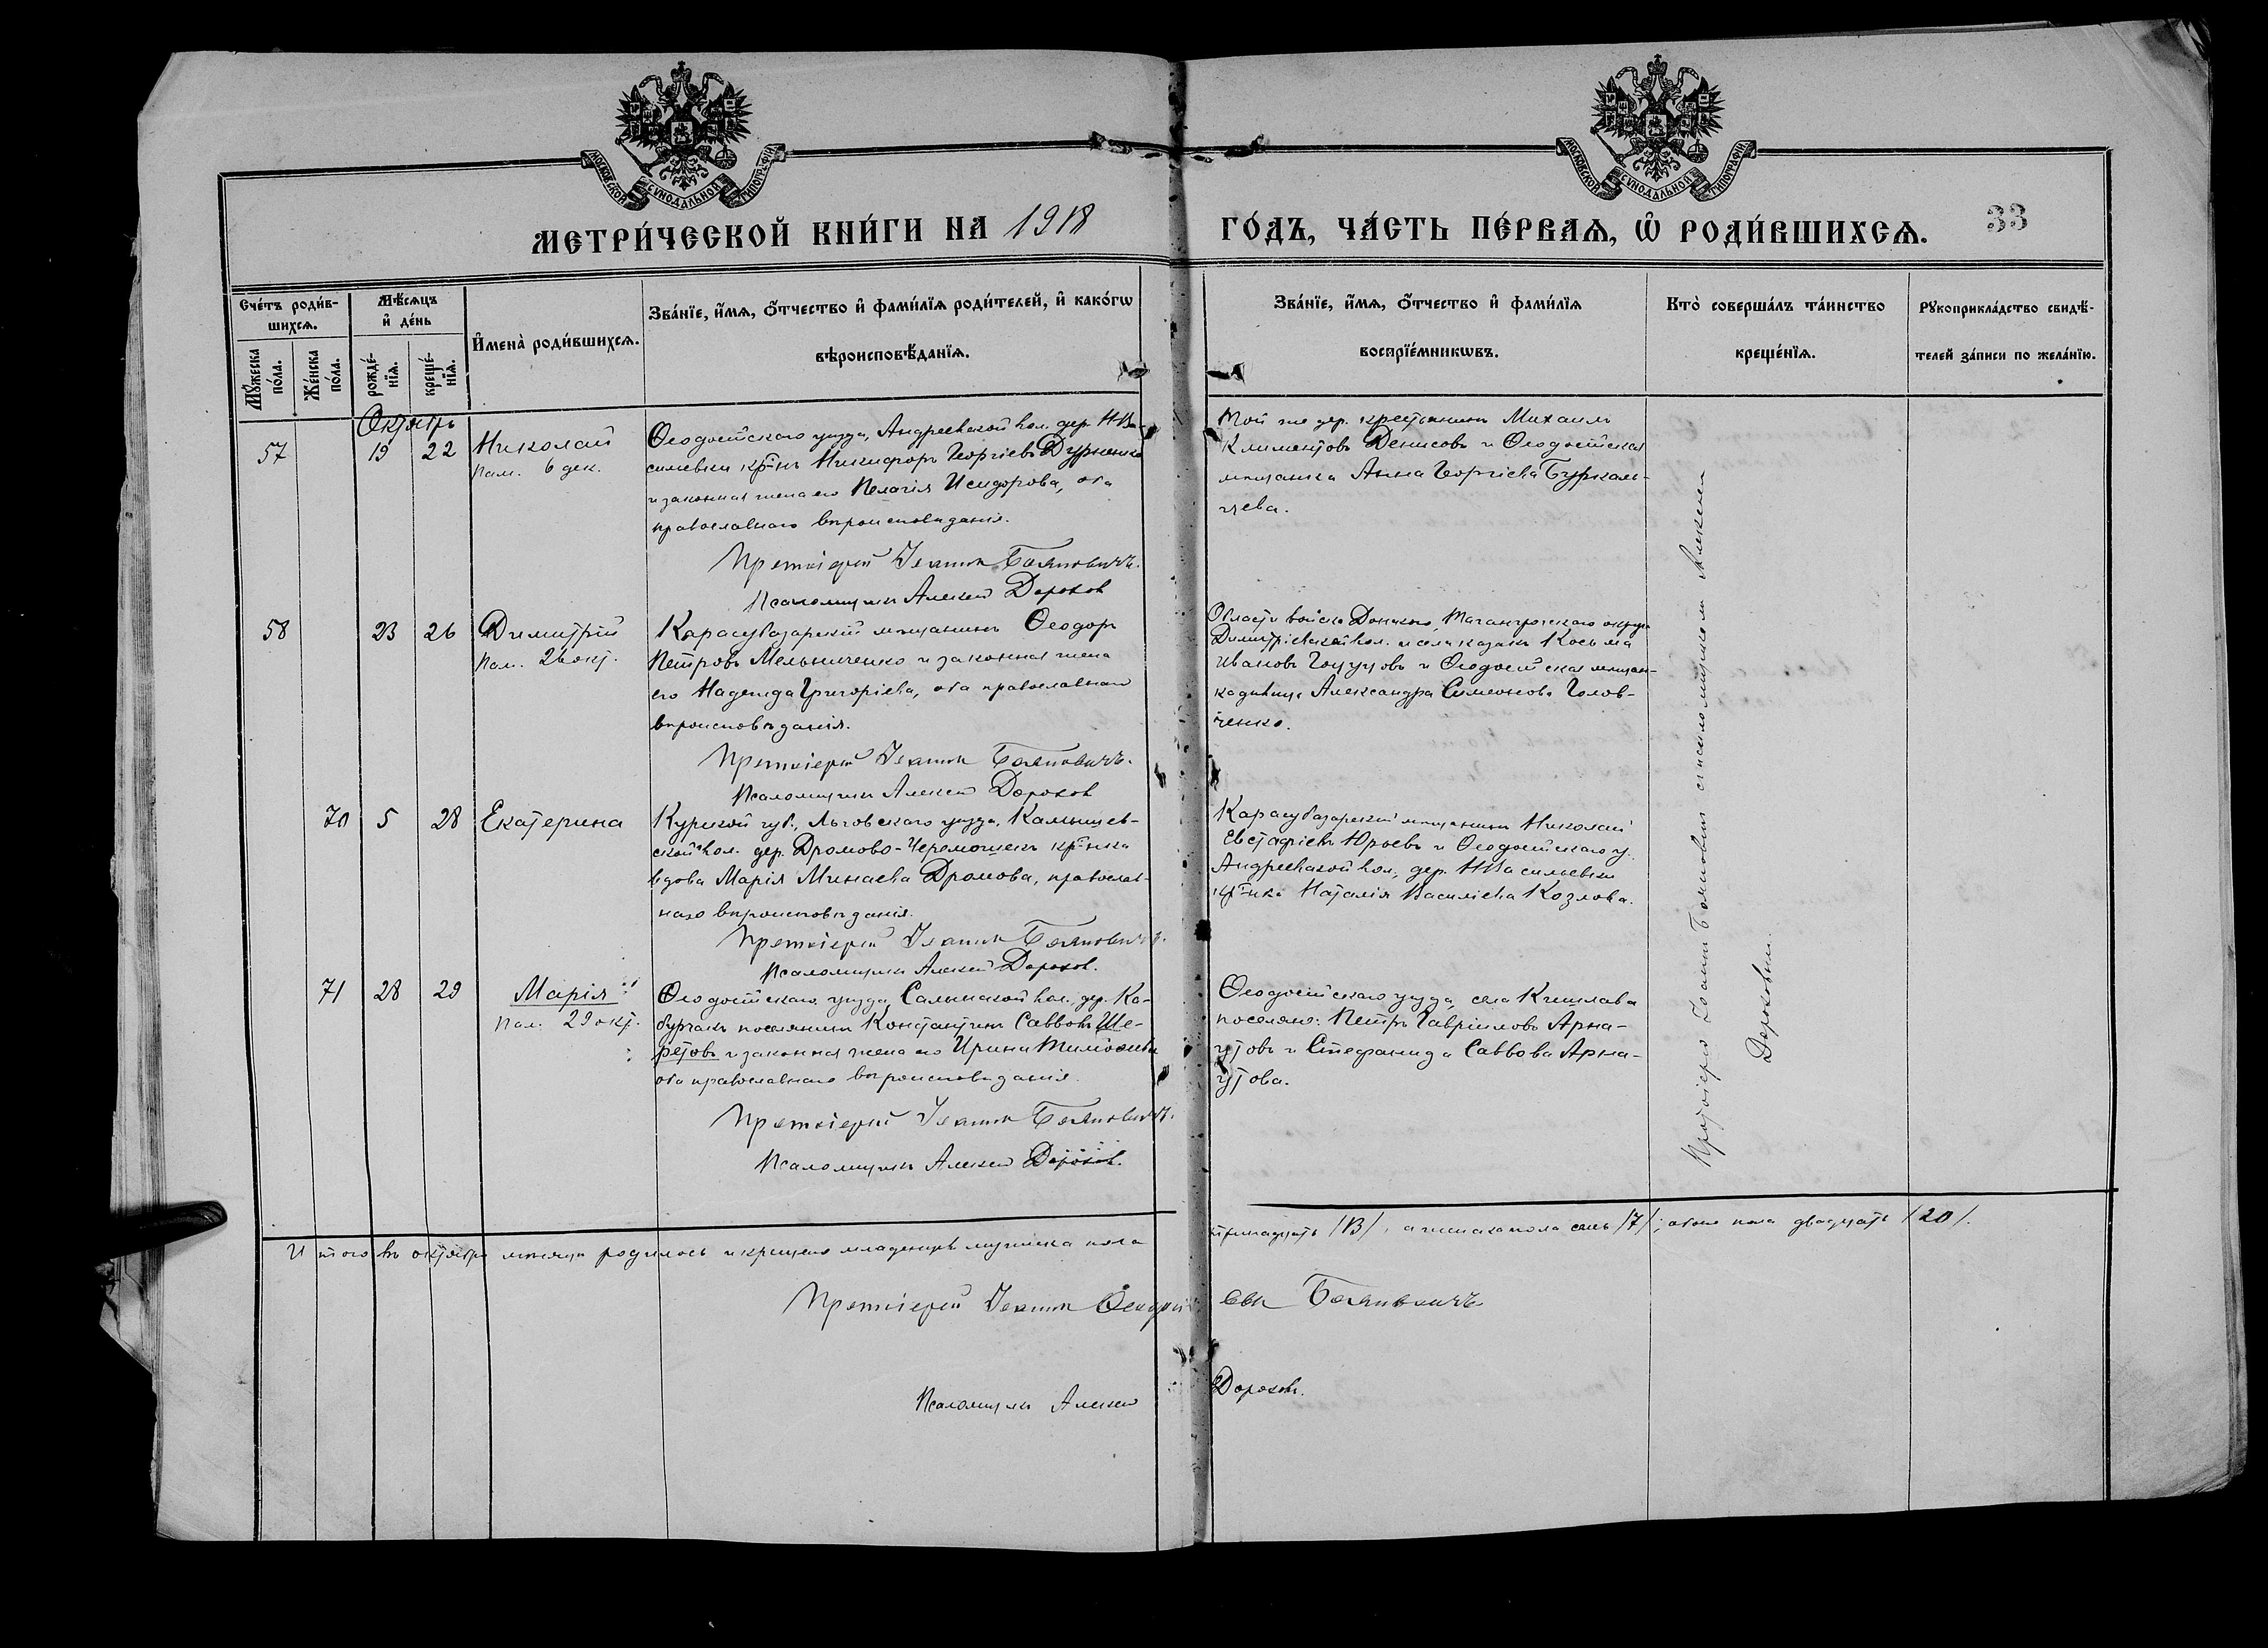 МОСКОВСКОЙ СУНОДАЛЬНОЙ ТИПОГРАФІИ
МОСКОВСКОЙ СУНОДАЛЬНОЙ ТИПОГРАФІИ
МЕТРИ́ЧЕСКОЙ КНИ́ГИ НА 1918
ГО́ДЪ, ЧА́СТЬ ПЕ́РВАѦ, Ѡ҆ РОДИ́ВШИХСѦ.
33
Сче́тъ роди́в-
шихсѧ.
Мꙋ́жеска
по́ла.
Же́нска
по́ла.
Мѣ́сѧцъ
и҆ де́нь
рожде́-
нїѧ.
креще́-
нїѧ.
И҆мена̀ роди́вшихсѧ.
Зва́нїе, и҆́мѧ, о҆́тчество и҆ фами́лїѧ роди́телей, и҆ како́гѡ
вѣроисповѣ́данїѧ.
Зва́нїе, и҆́мѧ, о҆́тчество и҆ фами́лїѧ
воспрїе́мникѡвъ.
Кто̀ соверша́лъ та́инство
креще́нїѧ.
Рꙋкоприкла́дство свидѣ́-
телей за́писи по жела́нїю.
Октябрь
57
19
22
Николай
Пам. 6 дек.
Ѳеодосійскаго уѣзда, Андреевской вол. дер. Н Ва-
сильевки кр-нъ Никифоръ Георгіевъ Дурненко
и законная жена его Пелагія Исидорова, оба
православнаго вѣроисповѣданія.
Протоіерей Іоаннъ Бояновичъ.
Псаломщикъ Алексій Дороховъ
Той же дер. крестьянинъ Михаилъ
Климентовъ Денисовъ и Ѳеодосійская
мѣщанка Анна Георгіева Буркаль-
цева.
58
23
26
Димитрій
Пам. 26 окт.
Карасубазарскій мѣщанинъ Ѳеодоръ
Петровъ Мельниченко и законная жена
его Надежда Григоріева, оба православнаго
вѣроисповѣданія.
Протоіерей Іоаннъ Бояновичъ.
Псаломщикъ Алексій Дороховъ
Области войска Донского, Таганрогскаго округа
Димитріевской вол. и села казакъ Косьма
Ивановъ и Ѳеодосійская мѣщан-
ка дѣвица Александра Симеонова Голов-
ченко.
70
5
28
Екатерина
Курской губ., Льговскаго уѣзда, Камышев-
ской вол. дер. Дромово-Черемошекъ кр-нка
вдова Марія Минаева Дромова, православ-
наго вѣроисповѣданія.
Протоіерей Іоаннъ Бояновичъ.
Псаломщикъ Алексій Дороховъ.
Карасубазарскій мѣщанинъ Николай
Евстафіевъ Юрьевъ и Ѳеодосійскаго у.
Андреевской вол., дер. Н Васильевки
кр-нка Наталія Василіева Козлова.
71
28
29
Марія
Пам. 29 окт.
Ѳеодосійскаго уѣзда, Салынской вол., дер. Ко-
бурчакъ поселянинъ Константинъ Саввовъ Ше-
ретовъ и законная жена его Ирина Тимоѳеева
оба православнаго вѣроисповѣданія.
Протоіерей Іоаннъ Бояновичъ.
Псаломщикъ Алексій Дороховъ.
Ѳеодосійскаго уѣзда, села Кишлава
поселяне: Петръ Гавріиловъ Арна-
утовъ и Стефанида Саввова Арна-
утова.
Протоіерей Іоаннъ Бояновичъ съ псаломщикомъ Алексіемъ
Дороховым.
Итого въ октябрѣ мѣсяцѣ родилось и крещено младенцевъ мужеска пола
тринадцать /13/, а женскаго пола семь /7/; обоего пола двадцать /20/.
Протоіерей Іоаннъ Бояновичъ
Псаломщикъ Алексій Дороховъ.